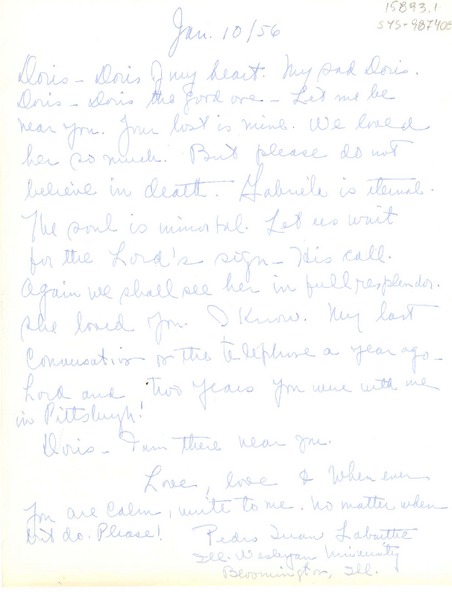 15893.1
SYS-987408
Jan. 10/56
Doris - Doris of my heart. My sad Doris.
Doris - Doris the good one - Let me be
near you. Your lost is mine. We loved
her so much. But please do not
believe in death. Gabriela is eternal.
The soul is inmortal. Let us wait
for the Lord's sign - His call.
Again we shall see her in full resplendor.
She loved you. I know. My last
conversation on the telephone a year ago -
Lord and two years you were with me
in Pittsburgh!
Doris - I am there near you.
Love, love & When ever
you are calm, write to me. No matter when
but do. Please! Pedro Juan Labarthe
Ill. Wesleyan University
Bloomington, Ill.